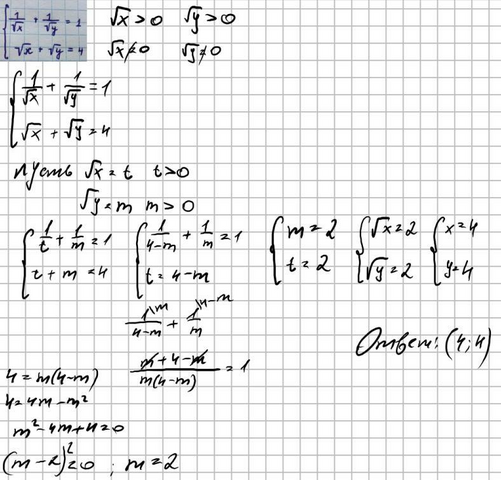 1/√x + 1/√y = 1
√x + √y = 4
√x > 0 √y > 0
√x ≠ 0 √y ≠ 0
1/√x + 1/√y = 1
√x + √y = 4
пусть √x = t t > 0
√y = m m > 0
1/t + 1/m = 1
t + m = 4
1/(4-m) + 1/m = 1
t = 4-m
m = 2
t = 2
√x = 2
√y = 2
x = 4
y = 4
1\m/(4-m) + 1\4-m/m
(m + 4 - m)/(m(4-m)) = 1
Ответ: (4; 4)
4 = m(4-m)
4 = 4m - m²
m² - 4m + 4 = 0
(m - 2)² = 0; m = 2